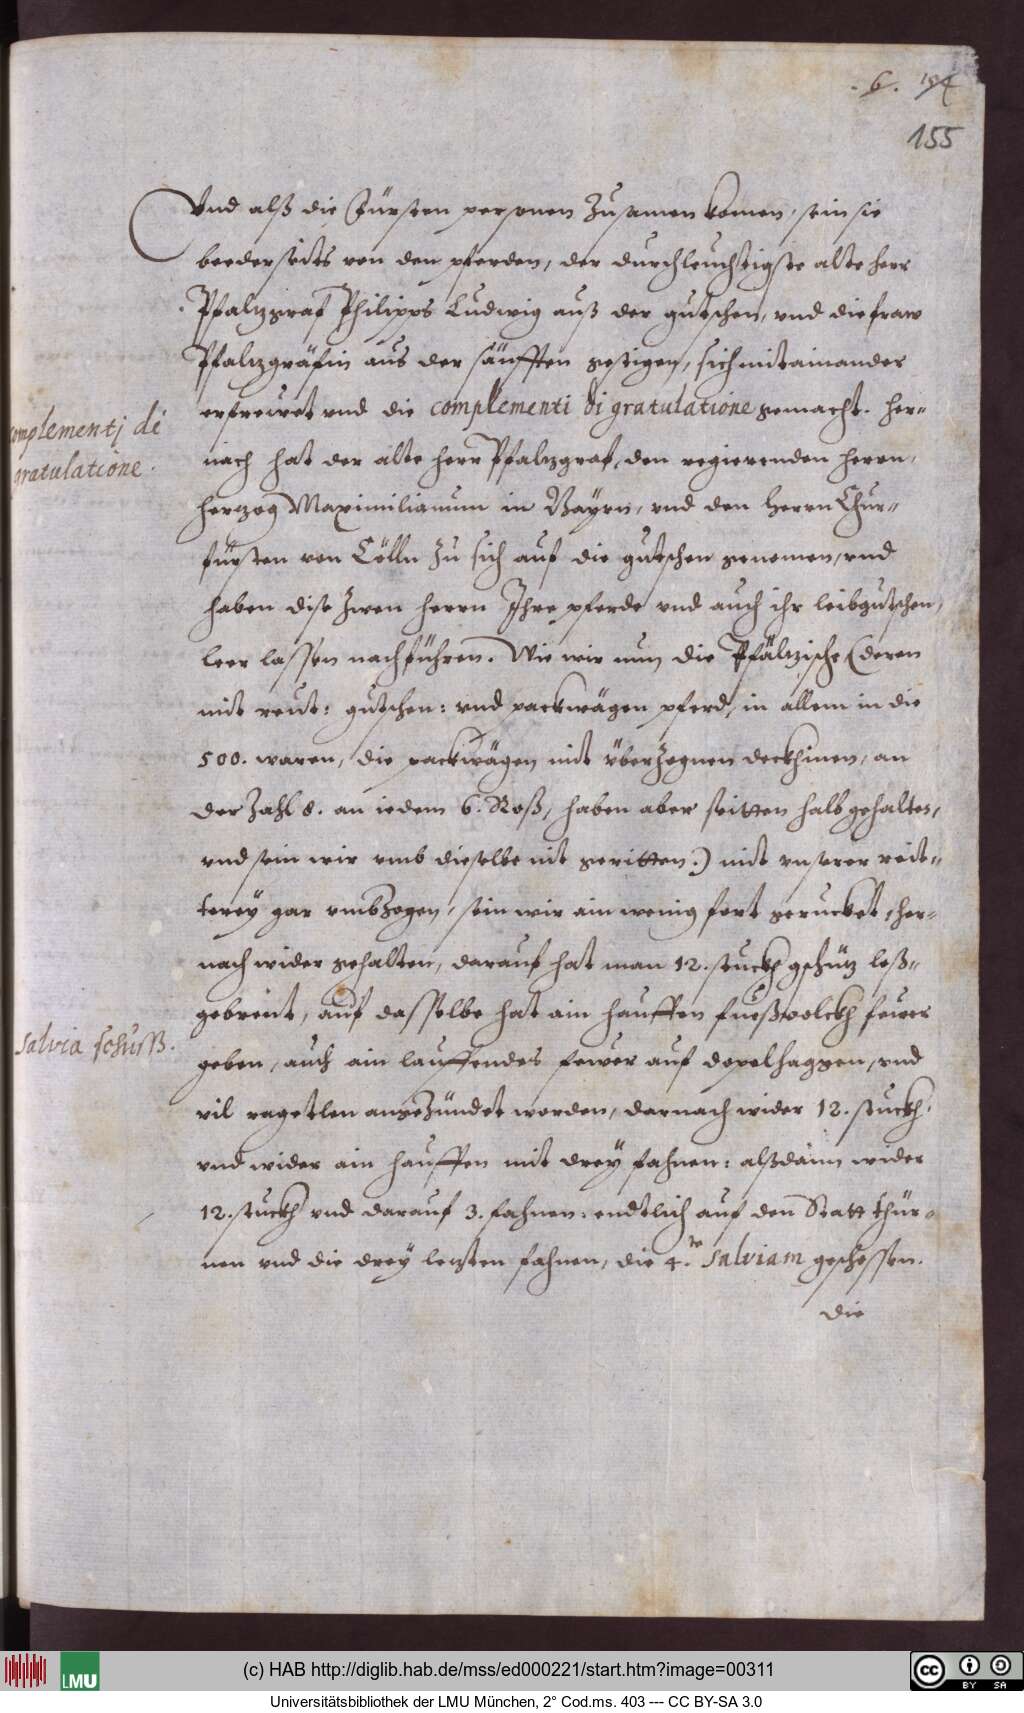 .6. 194
155
Vnd alß die Fürsten personen zusamen komen, sein sie
beederseits von den pferden, der durchleuchtigste alte herr
Pfalzgraf Philipps Ludwig auß der gutschen, vnd die fraw
Pfalzgräfin aus der sänfften gestigen, sich mit ainander
erfreivet vnd die complementi di gratulatione gemacht. her=
complementj de
gratulatione.
nach hat der alte herr Pfalzgraf, den regierenden herrn,
herzog Maximilianum in Bayrn, vnd den Herrn Chur=
fürsten von Cölln zu sich auf die gutschen genomen, vnd
haben dise zwen herrn Ihre pferde vnd auch ihr leibgutschen,
leer lassen nachführen. Wie wir nun die Pfälzische (deren
mit reut: gutschen: vnd packwägen pferd, in allem in die
500. waren, die packwägen mit überzognen deckhinen, an
der Zahl 8. an iedem 6. Roß, haben aber seitten halb gehalten,
vnd sein wir vmb dieselbe nit geritten.) mit vnserer reit=
terey gar vmbzogen, sein wir ain wenig fort geruckhet, her=
nach wider gehalten, darauf hat man 12. stuckh gschüz loß=
gebrent, auf dasselbe hat ain hauffen fueßvolckh fewer
salvia schuss.
geben, auch ain lauffendes fewer auf dopelhaggen, vnd
vil ragetlen angezündet worden, darnach wider 12. stuckh,
vnd wider ain hauffen mit drey fahnen: alßdann wider
12. stuckh vnd darauf 3. fahnen: endtlich auf den Statt thür=
nen vnd die drey lezten fahnen, die 4.te salviam geschossen.
die
(c) HAB http://diglib.hab.de/mss/ed000221/start.htm?image=00311
LMU
BY SA
Universitätsbibliothek der LMU München, 2° Cod.ms. 403 --- CC BY-SA 3.0